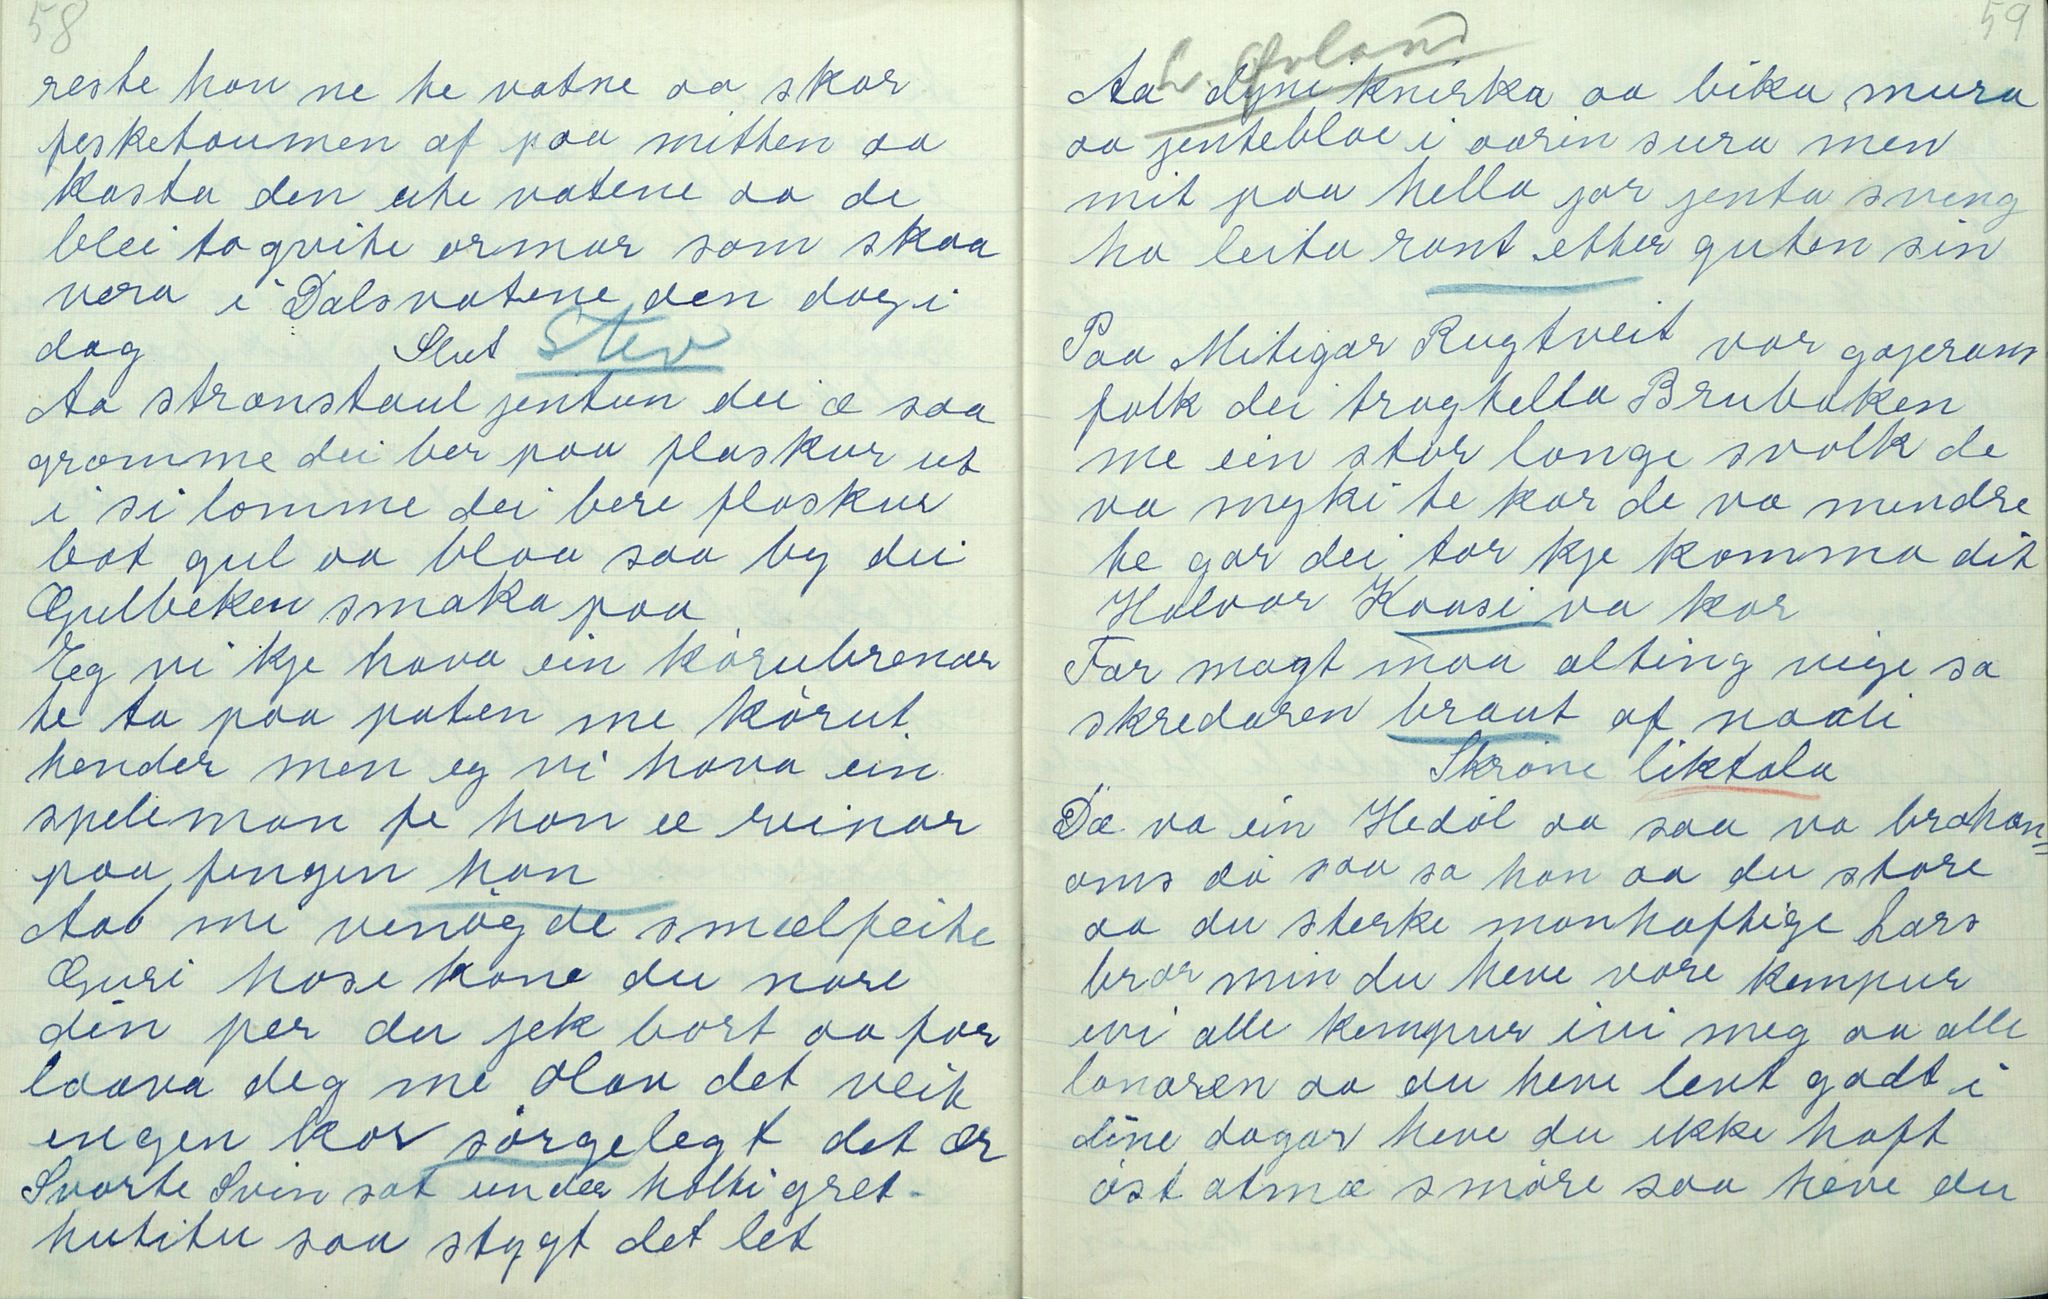 58
reste han ne te vatne aa skar
fesketaumen af paa mitten aa
kasta den ute vatene aa de
blei to qvite ormar som skaa
vera i Dalsvatene den dag i
dag Slut Stev
Aa stranstaul jentun dei æ saa
gromme dei ber paa flaskur ut
i si lomme dei bere flaskur
bot gul aa blaa saa by dei
Gulbeken smaka paa
Eg vi kje hava ein kørubrenar
te ta paa paten me kørut
hender men eg vi hava ein
speleman fe han æ reinar
paa fengen han
Aa me venøgde smælfeite
Guri hose kone du nore
din per du jek bort aa for
laava deg me Olav det veik
ingen kor sørgelegt det ær
Svarte Svin sat under holti gret
hutitu saa stygt det let
59
L. Øoland
Aa dyni knirka aa bika mura
aa jenteblae i aarin sura men
mit paa hella jor jenta sveng
ho leita rant etter guten sin
Paa Mitigar Rugtveit var gajerans
folk dei tragtella Brubaken
me ein stor lange svolk de
va myki te kar de va mendre
te gar dei tor kje komma dit
Halvor Kaasi va kar
For magt maa alting vige sa
skredaren braut af naali
Skrøne liktala
Dæ va ein Hedøl aa saa va bro han
oms dø saa sa han aa du store
aa du sterke manhaftige Lars
bror min du heve vore kempur
ivi alle kempur ivi meg aa alle
lonaren aa du heve levt godt i
dine dagar heve du ikke haft
ost atmæ smøre saa heve du